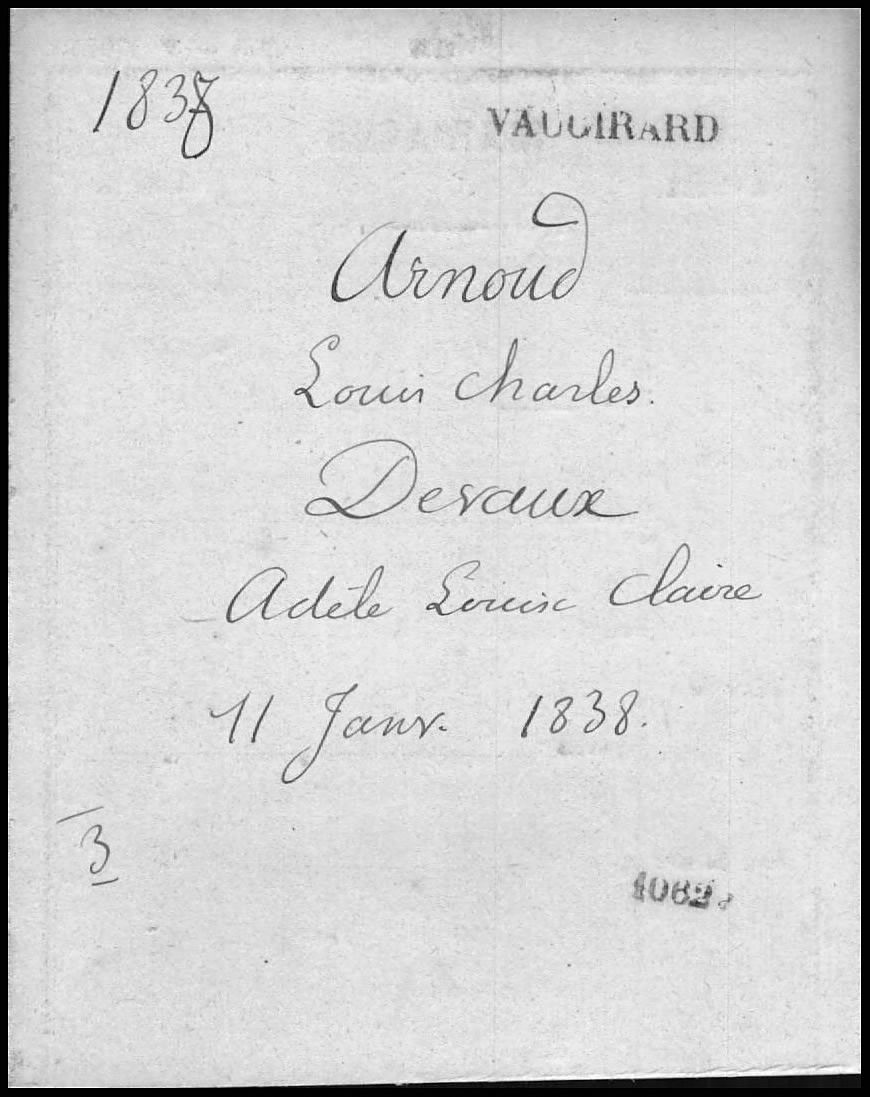 1838 VAUGIRARD
Arnoud
Louis Charles.
Devaux
Adèle Louise Claire
11 Janv. 1838.
3
1062